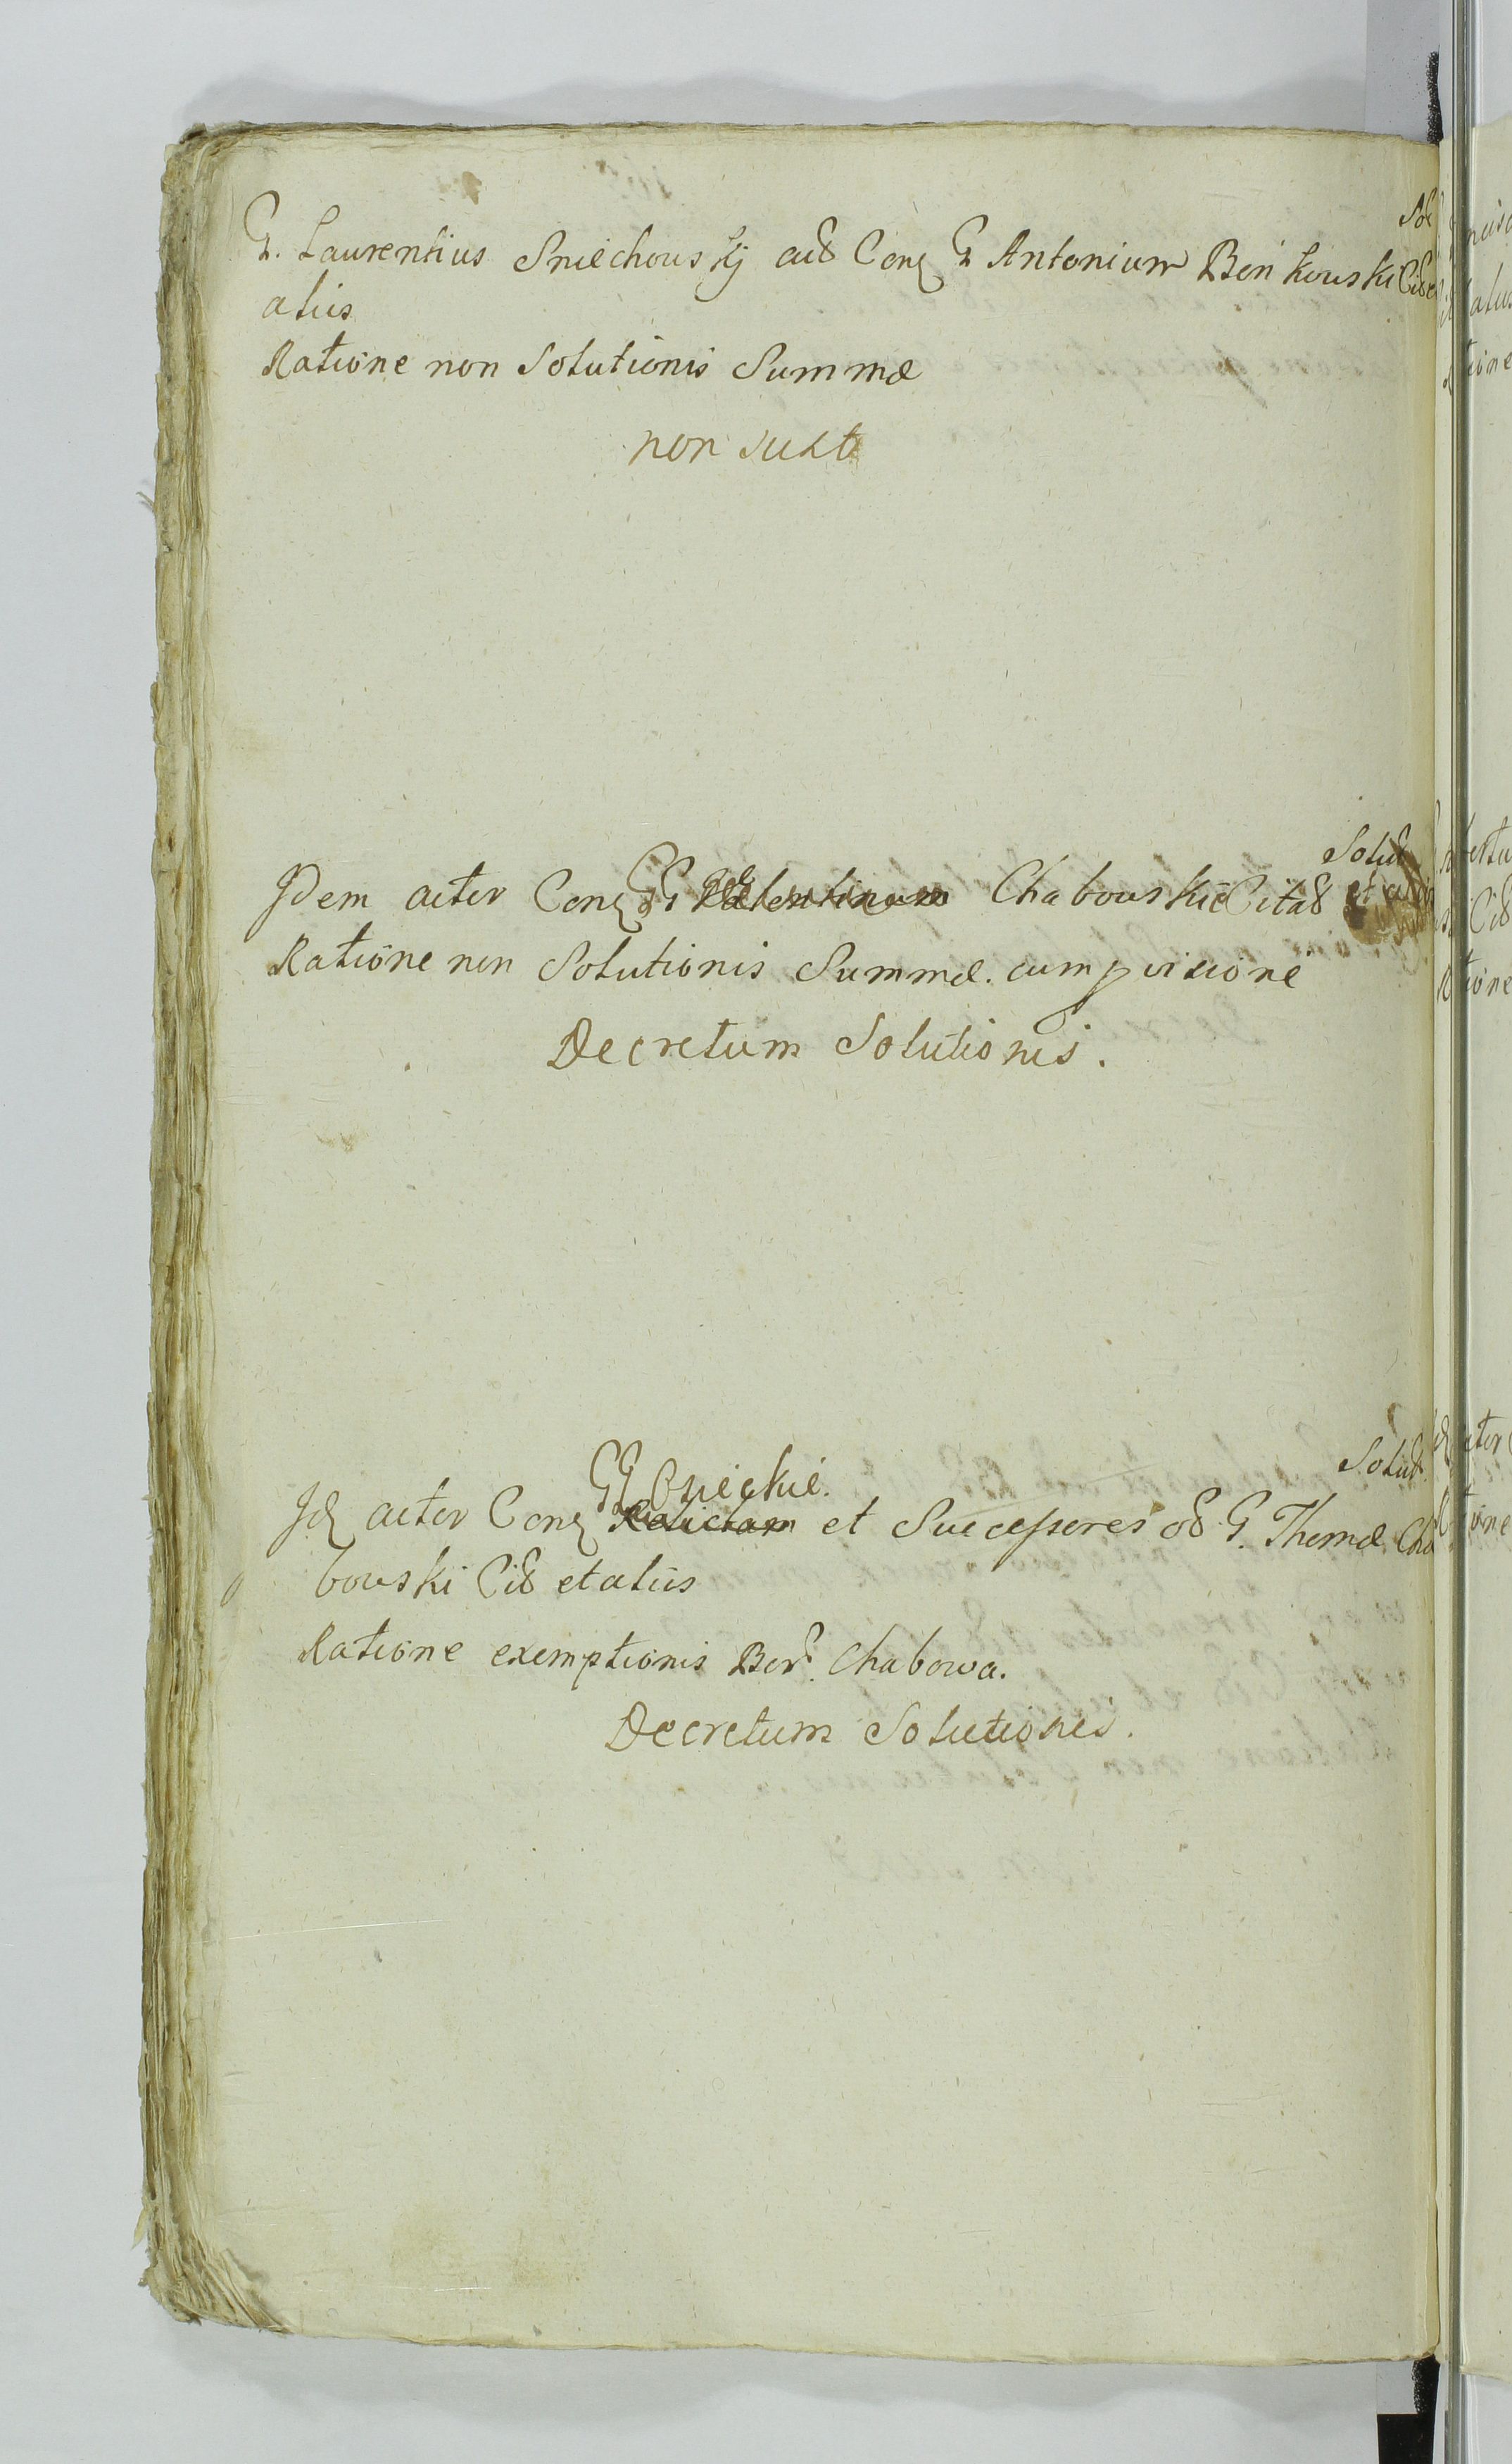 G. Laurentius Sniechowskij act Con G Antonium Bońkowski Cit et
aliis
Ratione non Solutionis Summæ
non sust
Solut
Idem actor Con GG Valentinum Chabowskie Citat et aliis
Ratione non Solutionis Summæ. cum provisione
Decretum Solutionis.
Solut
GG Opieckie.
Id actor Con Relictam et Successores od G. Thomæ Cha
bowski Cit et aliis
Ratione exemptionis Bon. Chabowa.
Decretum Solutionis.